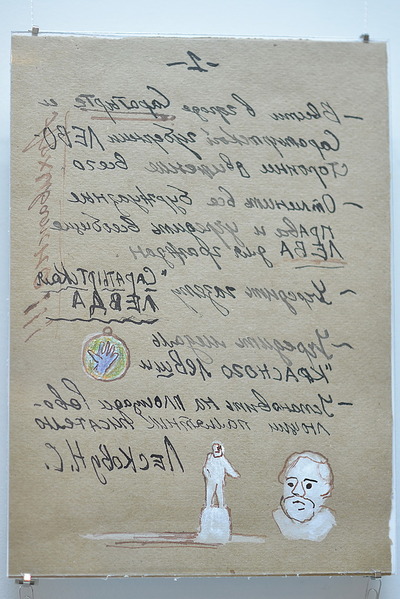 — 2 —
— Ввести в городе Саратырте и
Саратыртской губернии ЛЕВО-
сторонни движение всего
— Отменить все буржуазные
ПРАВА и учредить всеобщие
ЛЕВА для граждан
— Учредить газету "САРАТЫРТСКАЯ
ЛЕВДА
— Учредить медаль
"КРАСНОГО ЛЕВШИ
— Установить на площади Рево-
люции памятник писателю
ЛЕСКОВУ Н.С.